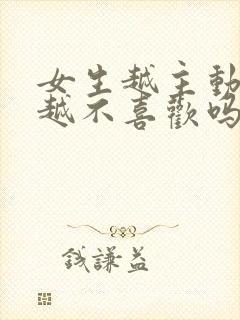 女生越主動
越不喜歡嗎
錢謙益